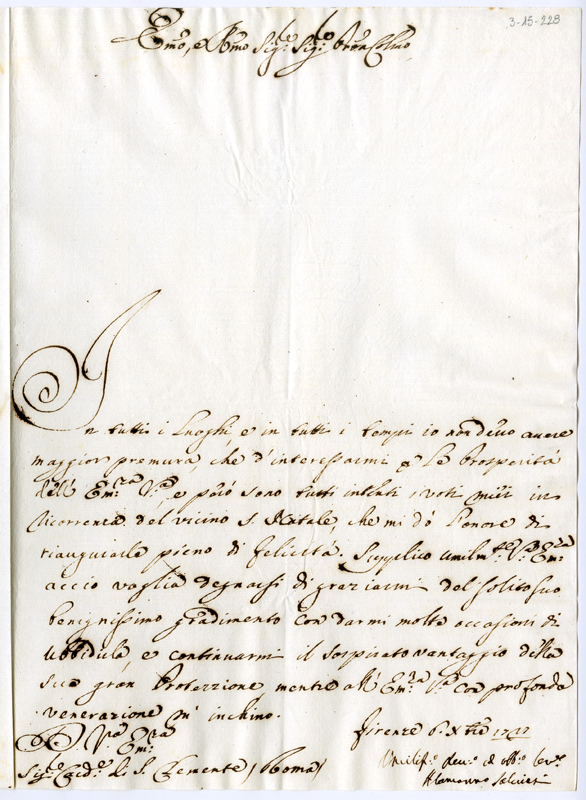 3-15-228
Em̃o, e Rm̃o Sig:re Sig:re Pron Colmo
In tutti i luoghi, e in tutti i tempi io non devo avere
maggior premura, che d'interessarmi p le Prosperità
dell' Em:za V:ra, e però sono tutti intenti i voti miei in
Ricorrenza del vicino S. Natale, che mi dò l'onore di
riaugurarle pieno di felicità. Supplico umilm:te V:ra Em:za
acciò voglia degnarsi di graziarmi del solito suo
benignissimo gradimento con darmi molte occasioni di
ubbidirla, e continuarmi il sospirato vantaggio della
sua gran Protezzione, mentre all' Em:za V:ra con profonda
venerazione m' inchino.
Firenze 6. Xbre
D V:ra Em:za
Sig:re Card:le di S. Clemente / Roma /
Umilis:o dev:o ed obb:o Serv:e
Alamanno Salviati